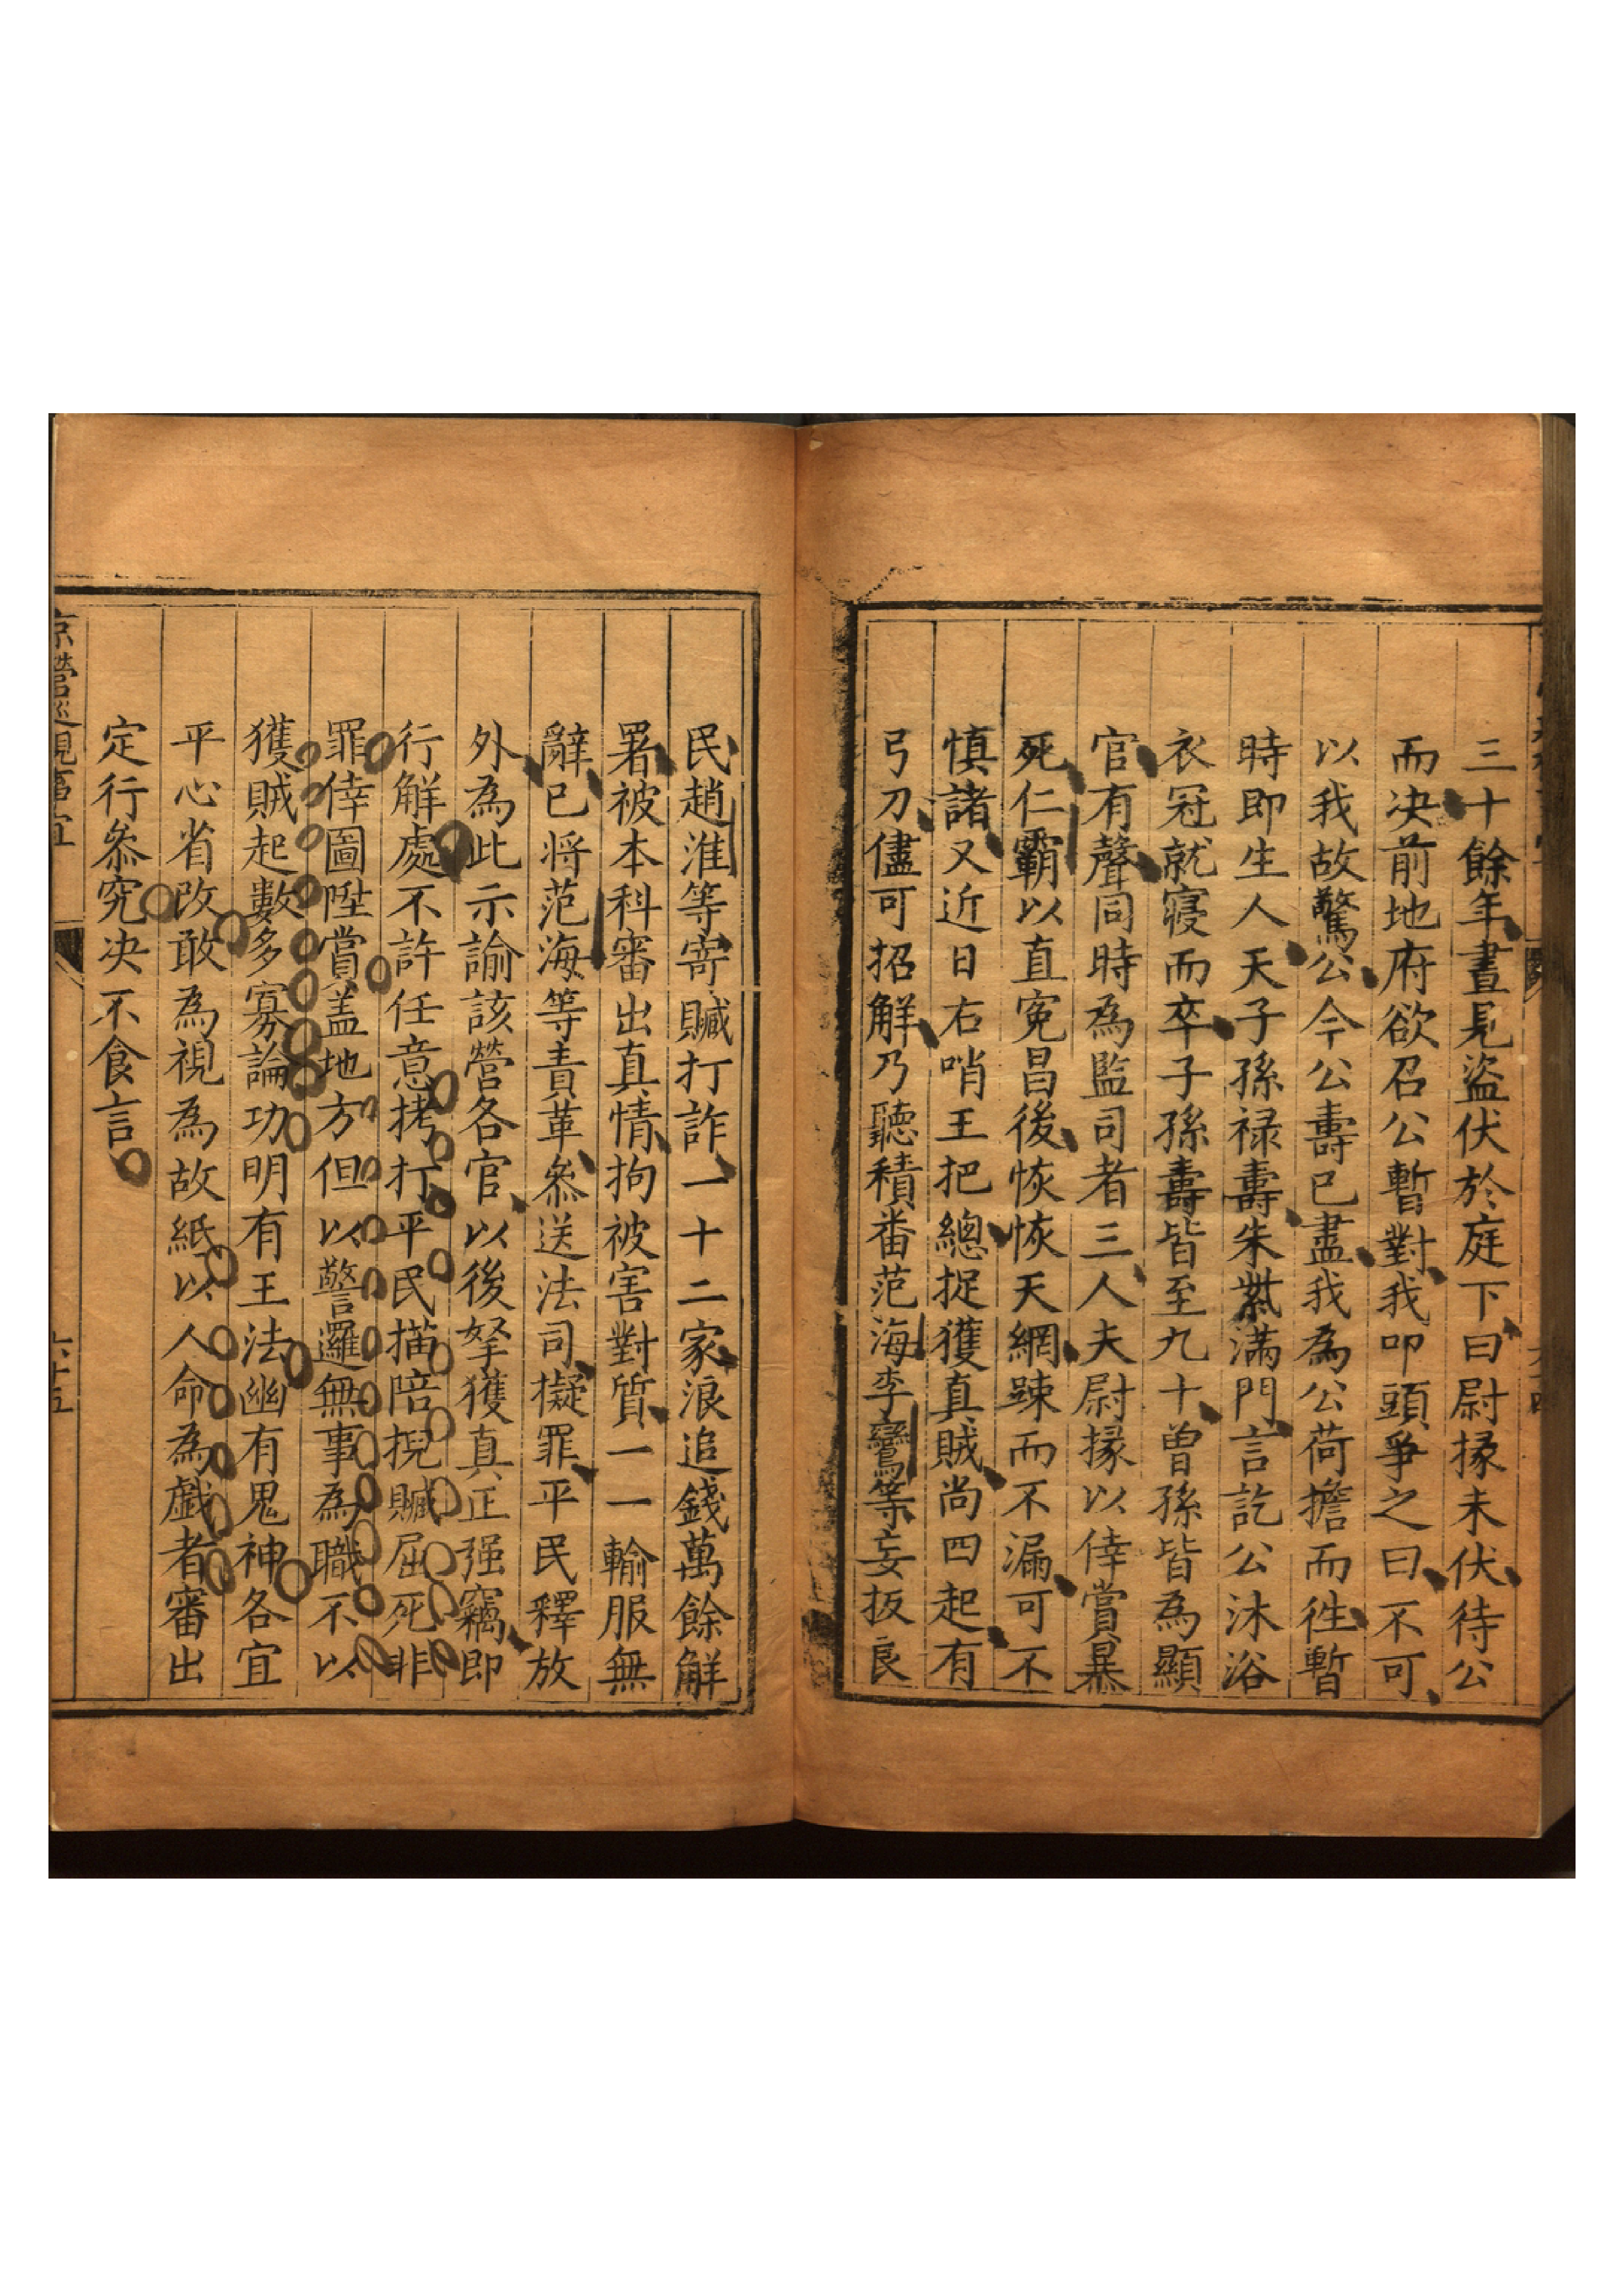 三十餘年晝見盜伏於庭下曰尉掾未伏待公
而决前地府欲召公暫對我叩頭爭之曰不可
以我故驚公今公壽已盡我為公荷擔而徃暫
時即生人天子孫禄壽朱紫滿門言訖公沐浴
衣冠就寢而卒子孫壽皆至九十曾孫皆為顯
官有聲同時為監司者三人夫尉掾以倖賞暴
死仁霸以直寃昌後恢恢天網踈而不漏可不
慎諸又近日右哨王把總捉獲真賊尚四起有
弓刀儘可招解乃聽積番范海李鸞等妄扳良
民趙淮等寄贓打詐一十二家浪追錢萬餘解
署被本科審出真情拘被害對質一一輸服無
辭已將范海等責革叅送法司擬罪平民釋放
外為此示諭該營各官以後拏獲真正强竊即
行解處不許任意拷打平民描陪捏贓屈死非
罪倖圖陞賞盖地方但以警邏無事為職不以
獲賊起數多寡論功明有王法幽有鬼神各宜
平心省改敢為視為故紙以人命為戲者審出
定行叅究决不食言
京營巡視事宜
六十五